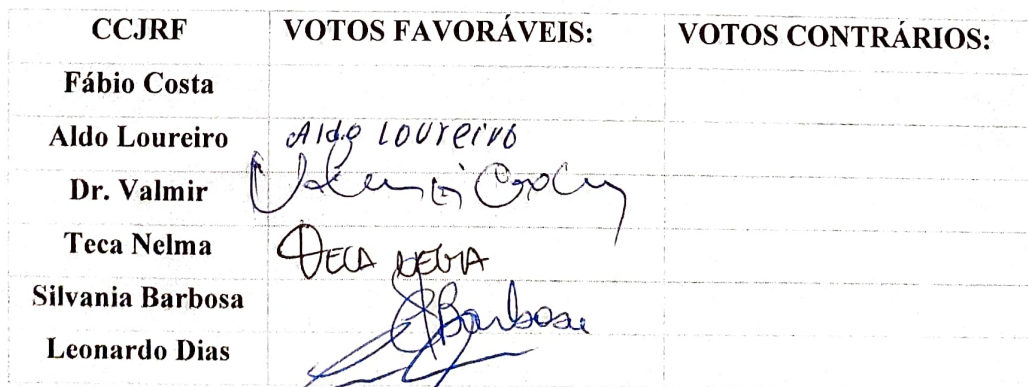 CCJRF VOTOS FAVORÁVEIS: VOTOS CONTRÁRIOS:
Fábio Costa
Aldo Loureiro Aldo Loureiro
Dr. Valmir
Teca Nelma Teca Nelma
Silvania Barbosa SBarbosa
Leonardo Dias